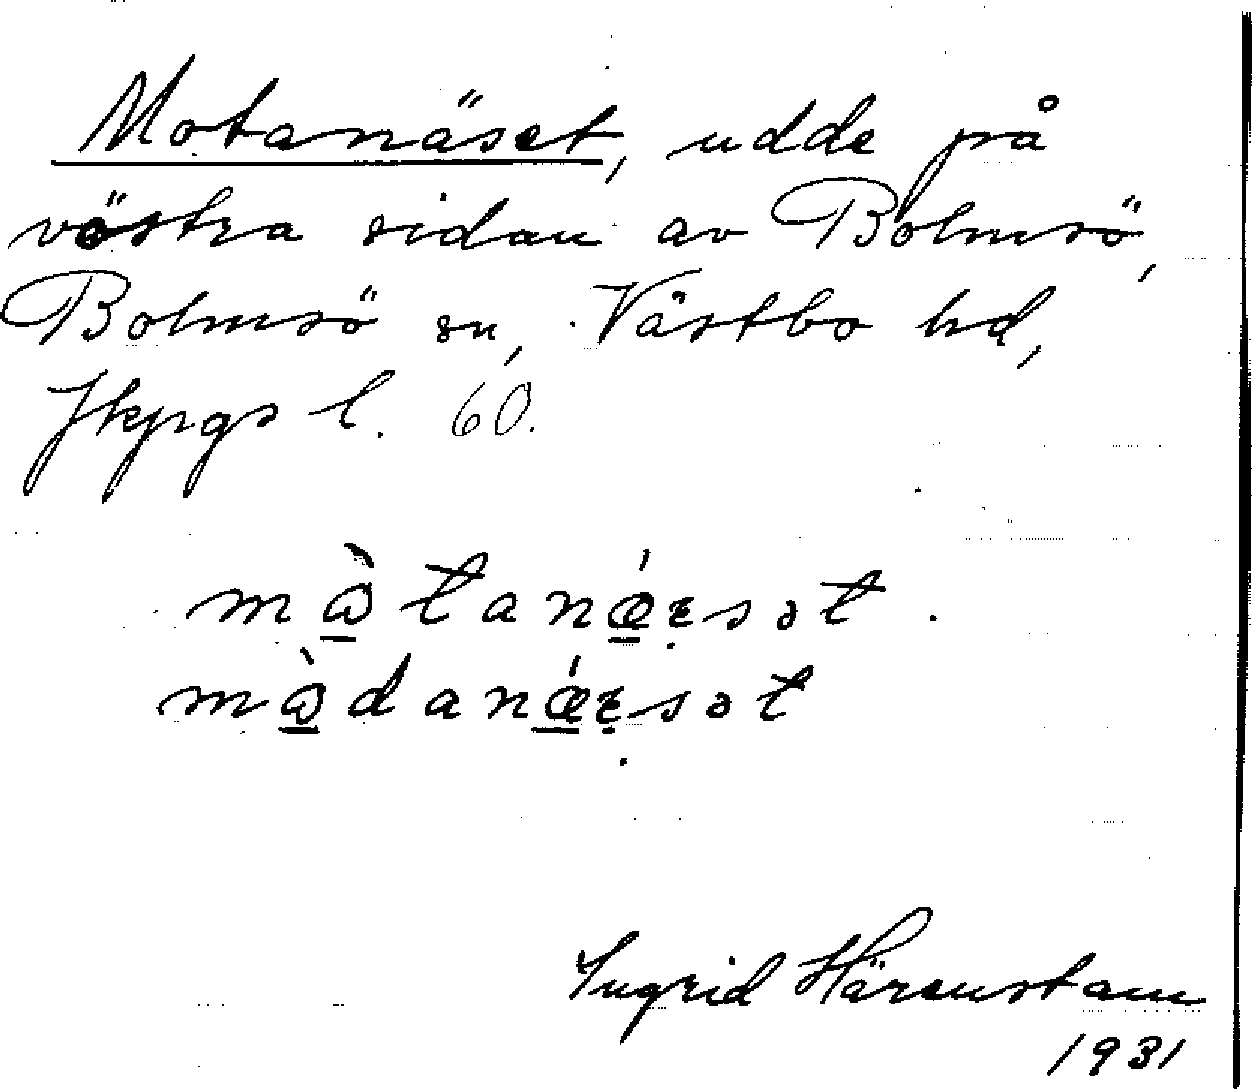 Motanäset, udde på
västra sidan av Bolmsö,
Bolmsö sn, Västbo hd,
Jkpgs l. 60.
mὼtanǽɛsət.
mὼdanǽɛsət
Ingrid Härenstam
1931